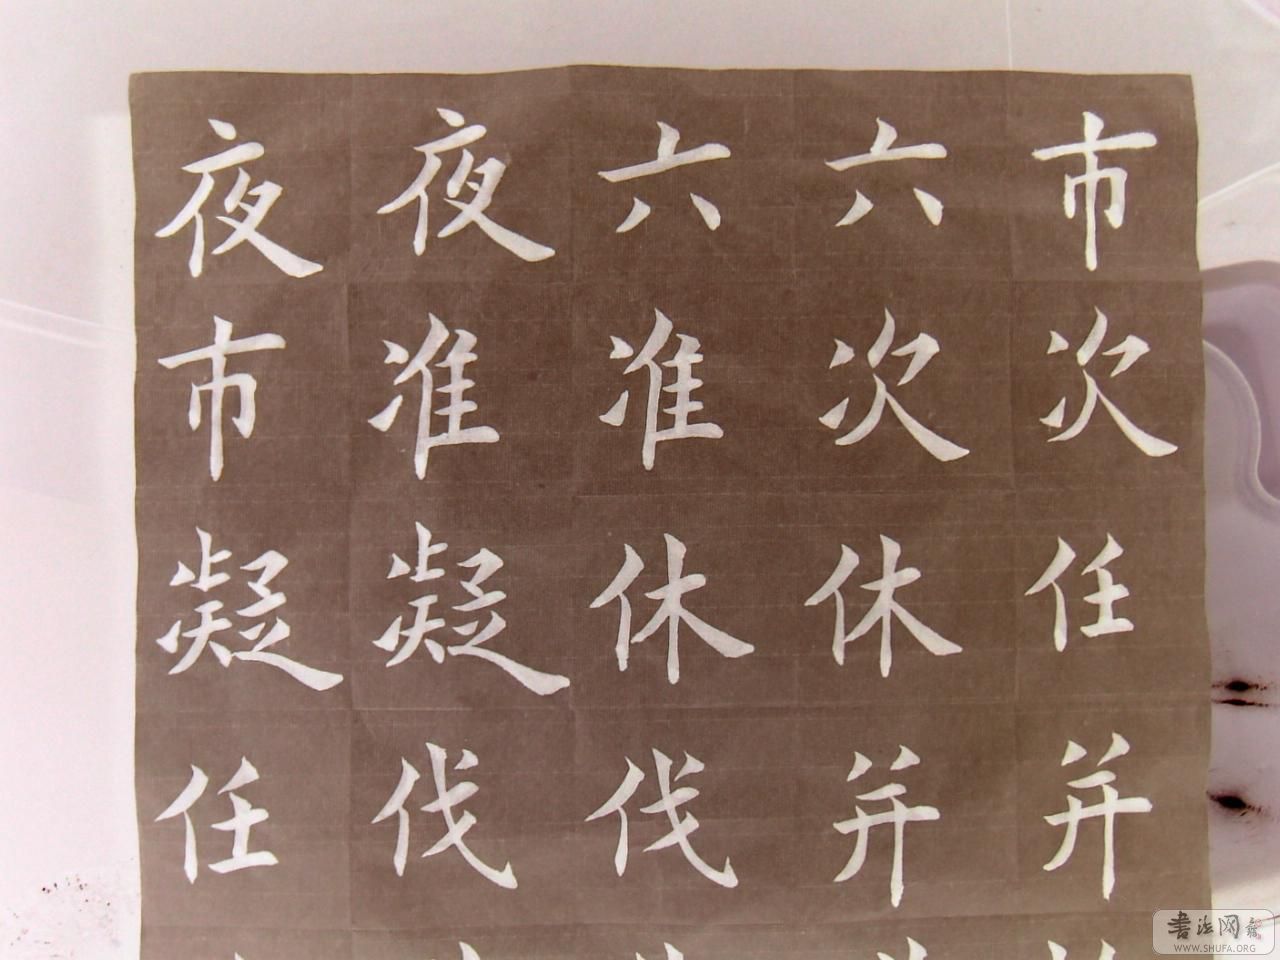 夜夜六六市
市准准次次
凝凝休休任
任伐伐并并
書法网
WWW.SHUFA.ORG